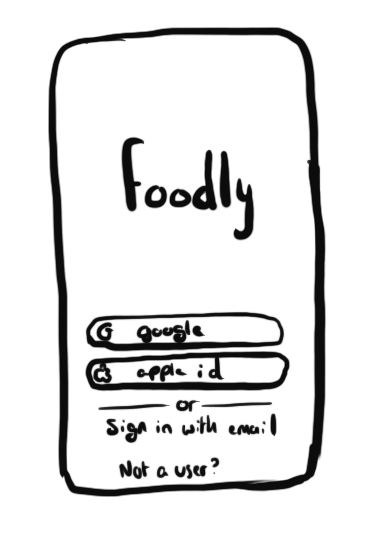 Foodly
G google
apple id
or
Sign in with email
Not a user?